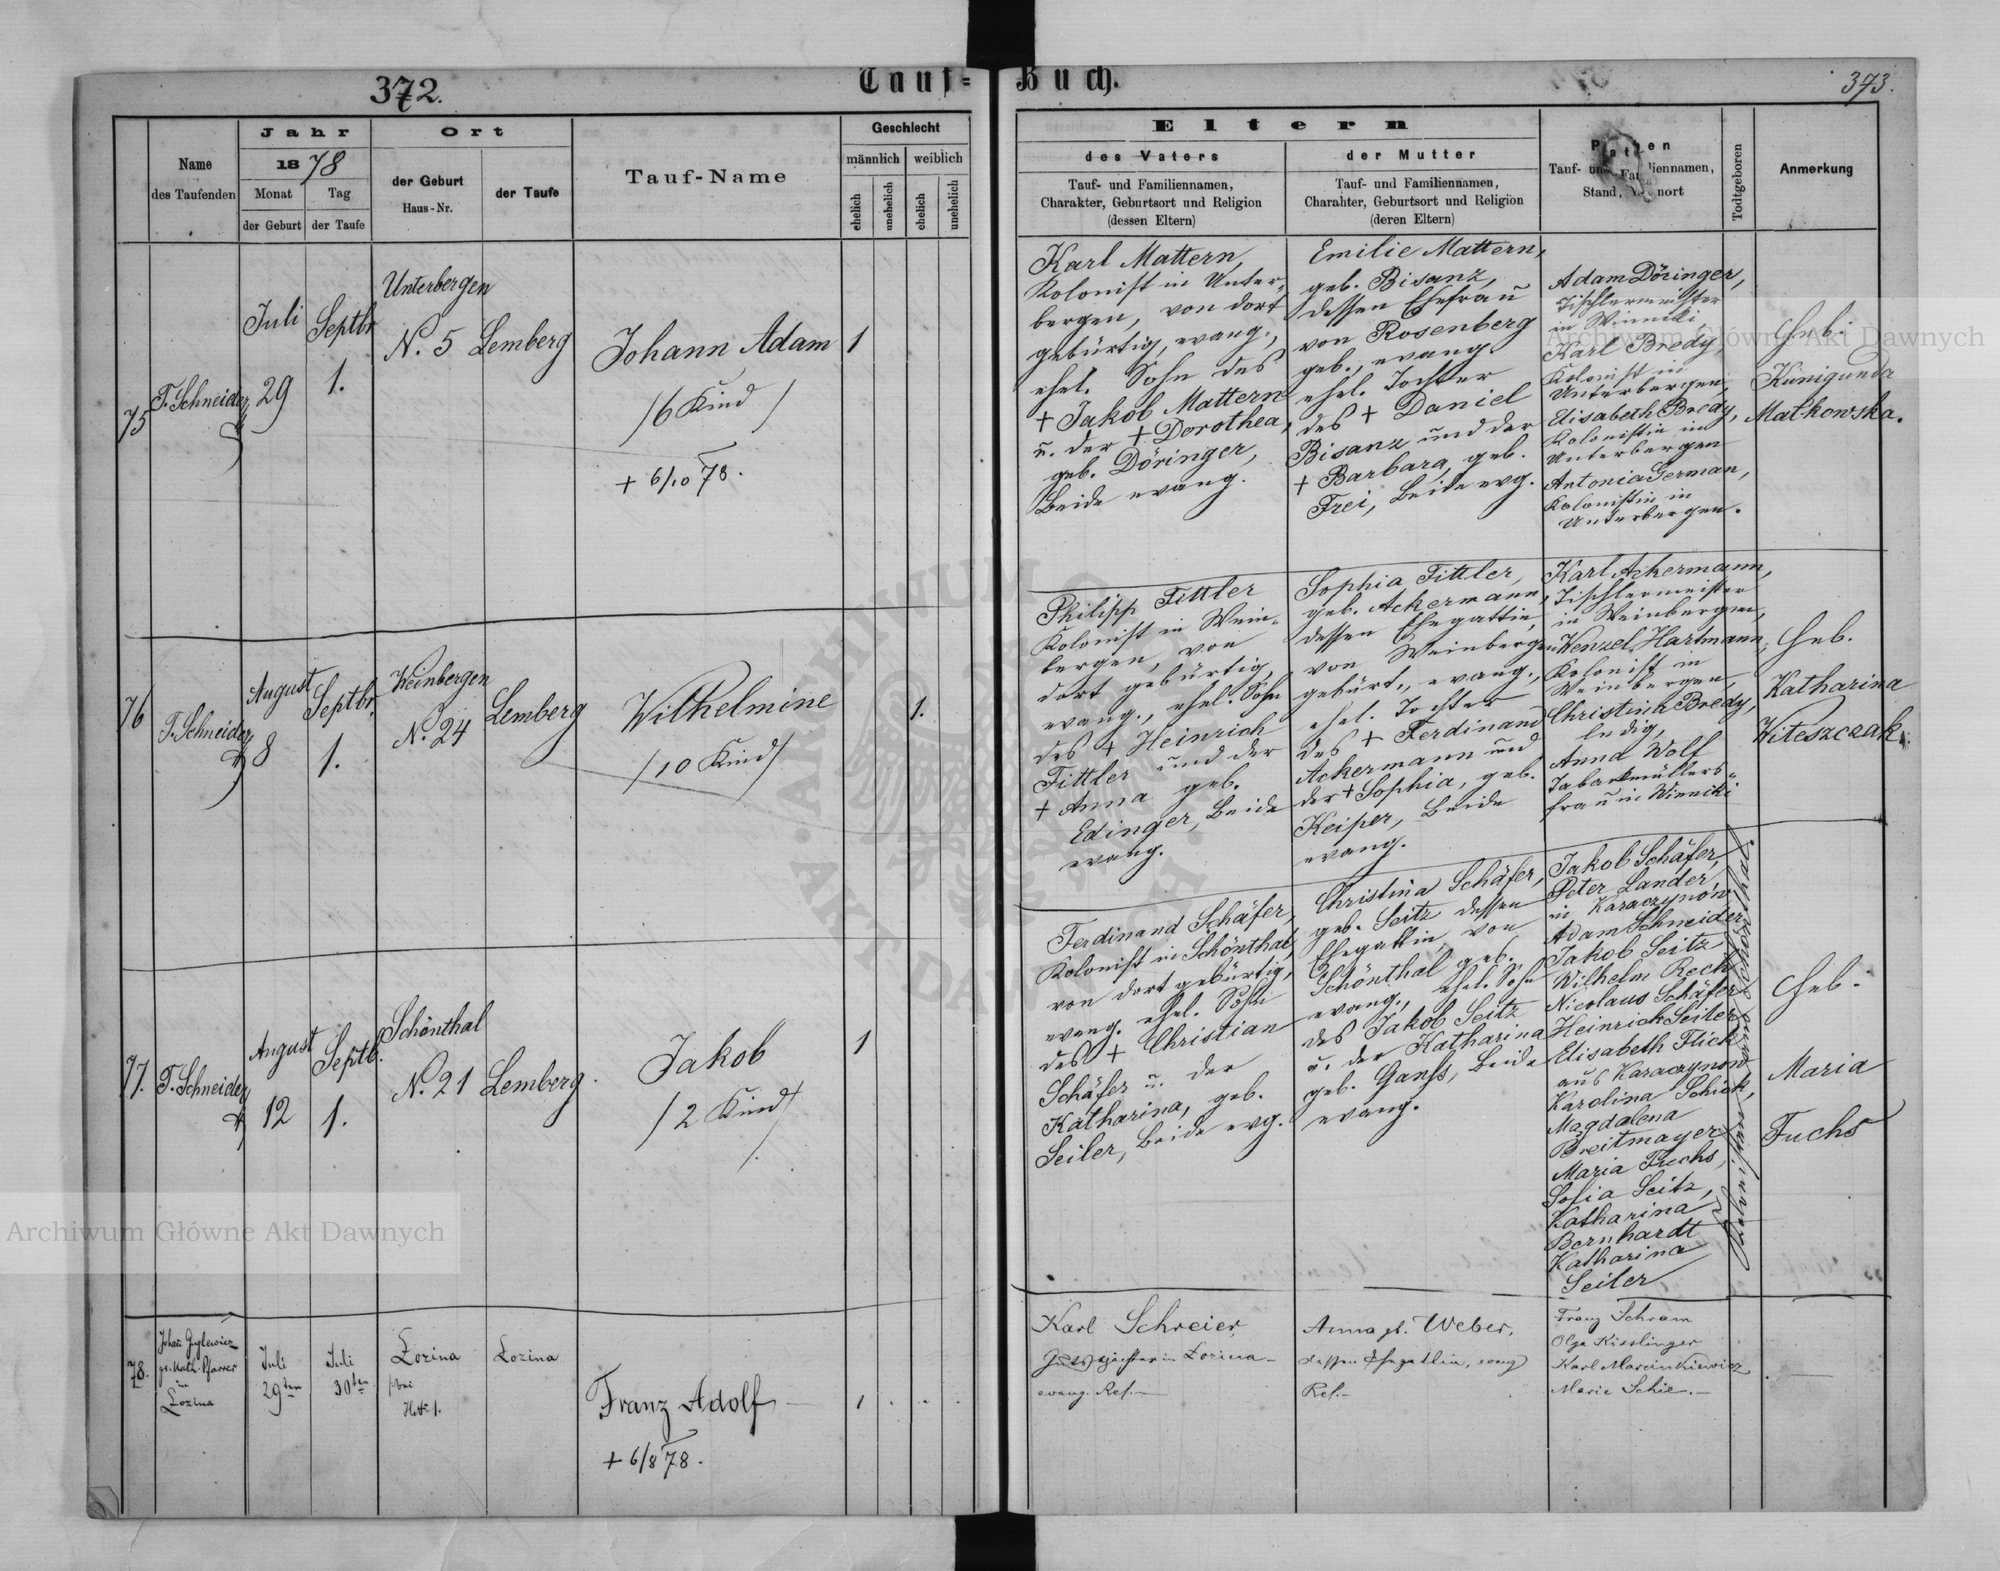 372.
Tauf-
Name
des Taufenden
Jahr
18 78
Monat
Tag
der Geburt
der Taufe
Ort
der Geburt
Haus-Nr.
der Taufe
Tauf-Name
Geschlecht
männlich
weiblich
ehelich
unehelich
ehelich
unehelich
75
T. Schneider
Juli
29
Septbr
1.
Unterbergen
N. 5
Lemberg
Johann Adam
/6 Kind/
+ 6/10 78.
1
76
T. Schneider
August
8
Septbr.
1.
Weinbergen
N. 24
Lemberg
Wilhelmine
/10 Kind/
1.
77.
T. Schneider
August
12
Septb.
1.
Schönthal
N. 21
Lemberg.
Jakob
/2 Kind/
1
78.
Pfarrer
Lozina
Juli
29ten
Juli
30ten
Lozina
Lozina
Franz Adolf
+ 6/8 78.
1
Buch.
373.
Eltern
des Vaters
Tauf- und Familiennamen,
Charakter, Geburtsort und Religion
(dessen Eltern)
der Mutter
Tauf- und Familiennamen,
Charahter, Geburtsort und Religion
(deren Eltern)
Pathen
Tauf- und Familiennamen,
Stand, Wohnort
Todtgeboren
Anmerkung
Karl Mattern,
Kolonist in Unter-
bergen, von dort
gebürtig, evang.,
ehel. Sohn des
+ Jakob Mattern
u. der + Dorothea,
geb. Döringer,
Beide evang.
Emilie Mattern,
geb. Bisanz,
dessen Ehefrau
von Rosenberg
geb., evang.
ehel. Tochter
des + Daniel
Bisanz und der
+ Barbara, geb.
Frei, Beide evg.
Adam Döringer,
Tischlermeister
in Winniki,
Karl Bredy,
Kolonist in
Unterbergen,
Elisabeth Bredy,
Kolonistin in
Unterbergen
Antonia German,
Kolonistin in
Unterbergen.
Heb.
Kunigunda
Malkowska.
Philipp Tittler
Kolonist in Wein-
bergen, von
dort gebürtig,
evang., ehel. Sohn
des + Heinrich
Tittler und der
+ Anna geb.
Edinger, Beide
evang.
Sophia Tittler,
geb. Ackermann,
dessen Ehegattin,
von Weinbergen
gebürt., evang.,
ehel. Tochter
des + Ferdinand
Ackermann und
der + Sophia, geb.
Keiper, Beide
evang.
Karl Ackermann,
Tischlermeister
in Weinbergen,
Wenzel Hartmann,
Kolonist in
Weinbergen,
Christina Bredy,
ledig,
Anna Wolf
Tabakmüllers-
frau in Winniki
Heb.
Katharina
Witeszczak.
Ferdinand Schäfer,
Kolonist in Schönthal,
von dort gebürtig,
evang. ehel. Sohn
des + Christian
Schäfer u. der
Katharina, geb.
Seiler, Beide evg.
Christina Schäfer,
geb. Seitz dessen
Ehegattin, von
Schönthal geb.
evang., ehel. Sohn
des Jakob Seitz
u. der Katharina
geb. Ganß, Beide
evang.
Jakob Schäfer,
Peter Lander
in Karaczynów
Adam Schneider
Jakob Seitz
Wilhelm Rech
Nicolaus Schäfer
Heinrich Seiler
Elisabeth Flick
aus Karaczynow
Karolina Schick,
Magdalena
Breitmayer
Maria Fuchs,
Sofia Seitz,
Katharina
Bernhardt
Katharina
Seiler
Heb.
Maria
Fuchs
Karl Schreier,
in Lozina
evang. Ref.
Anna g. Weber,
dessen Ehegattin, evang
Ref.
Franz Schram
Olga Kisslinger
Karl Marcinkiewicz
Marie Schie.
Archiwum Główne Akt Dawnych
Archiwum Główne Akt Dawnych